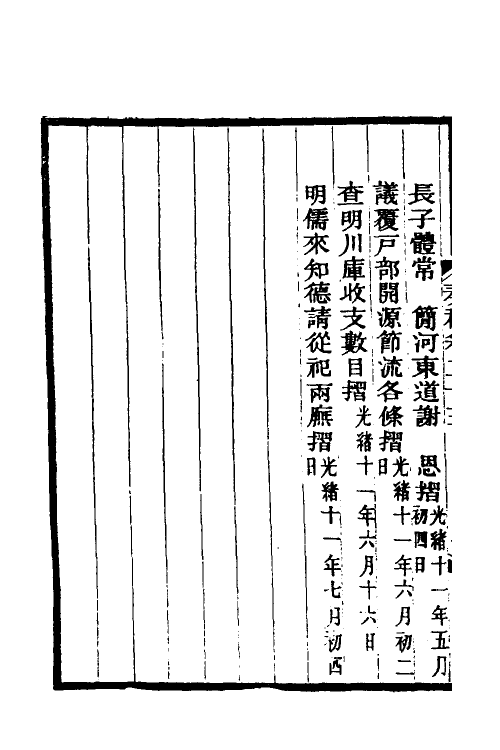 長子體常 簡河東道謝 恩摺光緒十一年五月初四日
議覆戸部開源節流各條摺光緒十一年六月初二日
查明川庫收支數目摺光緒十一年六月十六日
明儒來知德請從祀兩廡摺光緒十一年七月初四日